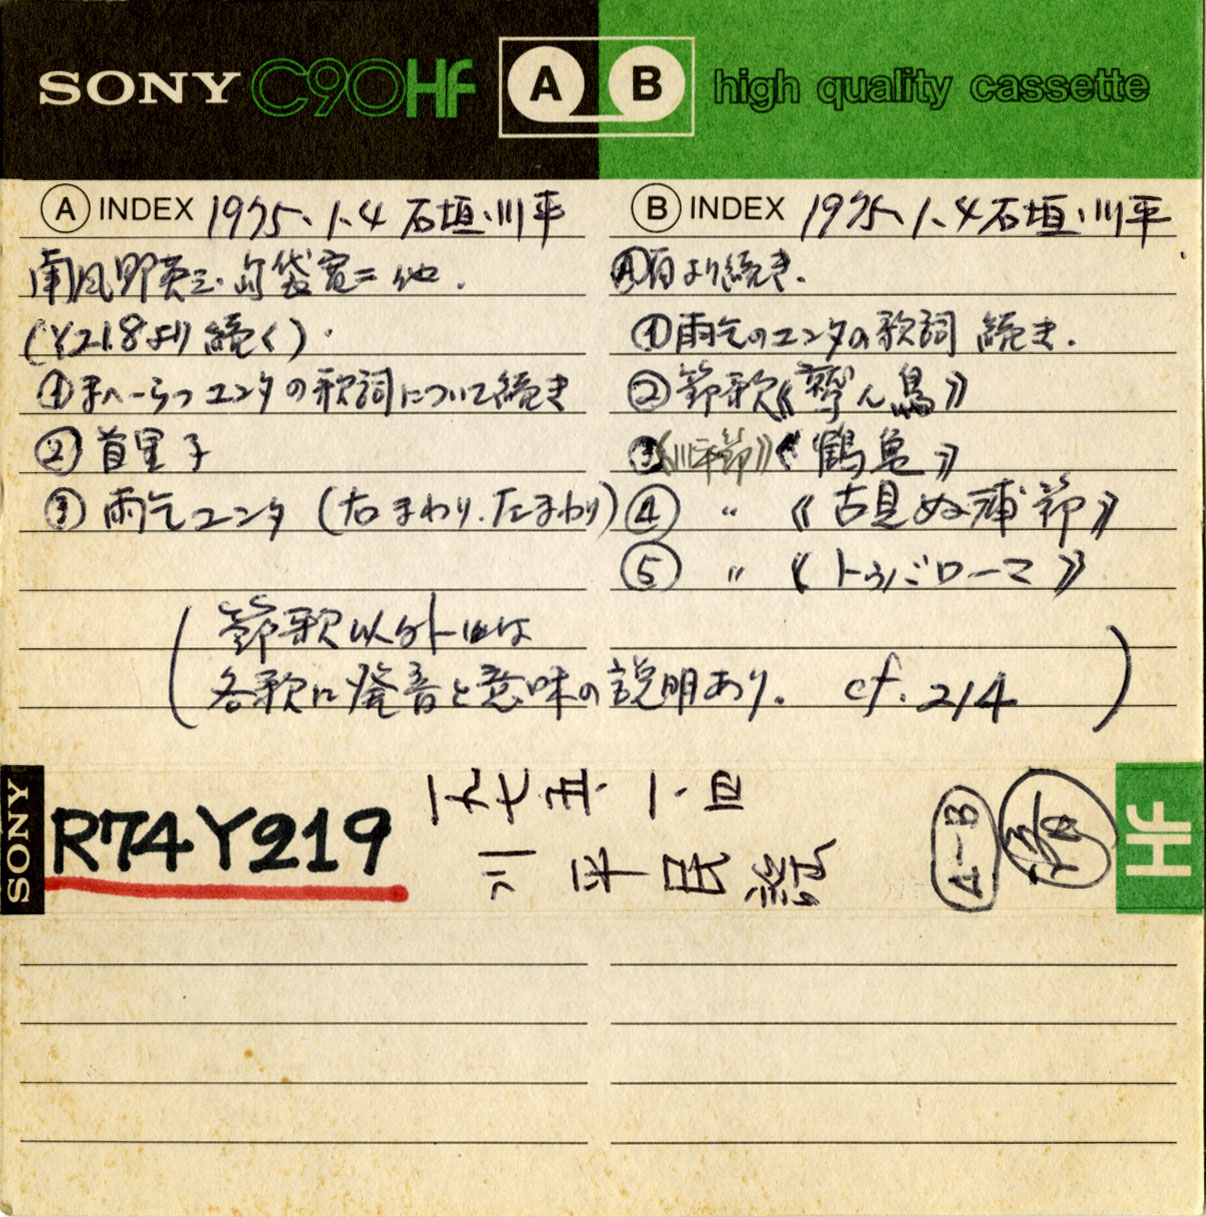 SONY C90HF A B high quality cassette
A INDEX 1975.1.4 石垣・川平
南風野英三・ 他.
(Y218より続く).
① まへーらつユンタの歌詞について続き
② 首里子
③ 雨乞ユンタ (右まわり.左まわり)
B INDEX 1975.1.4 石垣・川平
A面より続き.
① 雨乞のユンタの歌詞 続き.
② 節歌《鷲ん鳥》
③ 《川平節》《鶴亀》
④ 〃 《古見ぬ浦節》
⑤ 〃 《トゥバローマ》
(節歌以外には
各歌に発音と意味の説明あり. cf. 214)
SONY
R74Y219
一九七五・一・四
川平民謡
A-B
HF